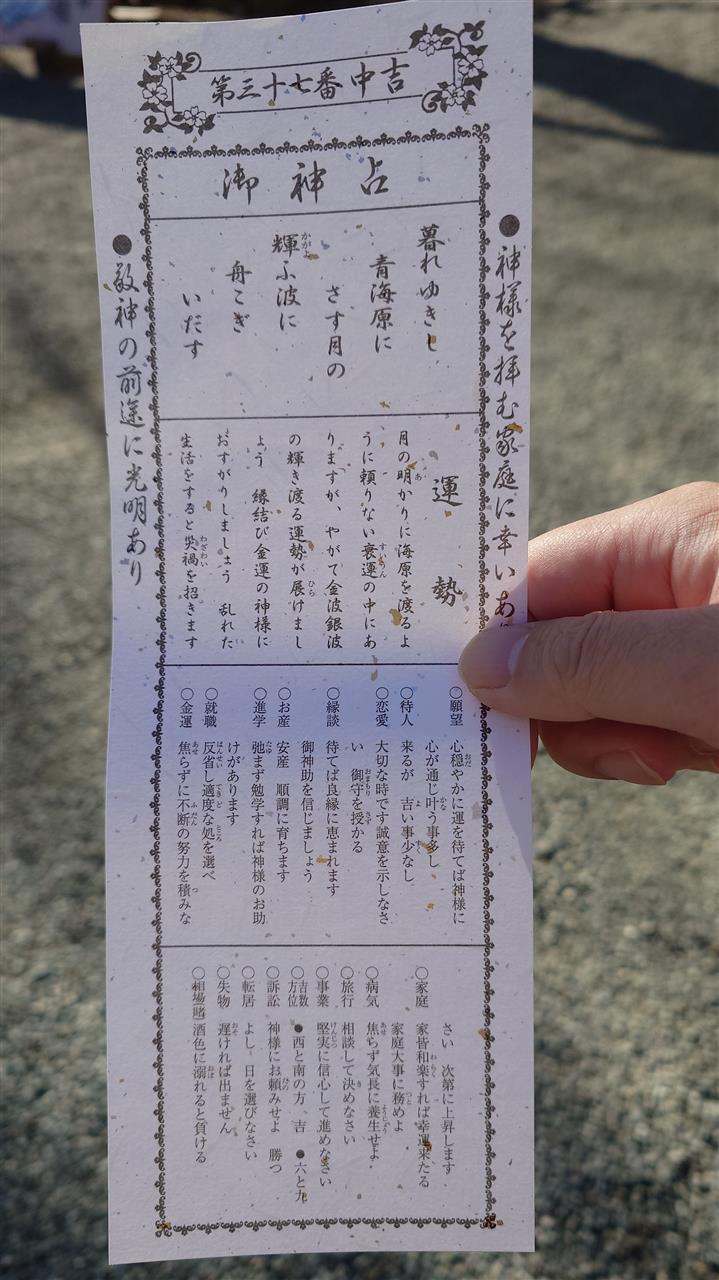 第三十七番 中吉
御神占
●神様を拝む家庭に幸いあり
暮れゆきし
青海原に
さす月の
輝ふ波に
舟こぎ
いだす
●敬神の前途に光明あり
運勢
月の明かりに海原を渡るよ
うに頼りない衰運の中にあ
りますが、やがて金波銀波
の輝き渡る運勢が展けまし
ょう 縁結び金運の神様に
おすがりしましょう 乱れた
生活をすると災禍を招きます
○願望 心穏やかに運を待てば神様に
心が通じ叶う事多し
○待人 来るが 吉い事少なし
○恋愛 大切な時です誠意を示しなさ
い 御守を授かる
○縁談 待てば良縁に恵まれます
御神助を信じましょう
○お産 安産 順調に育ちます
○進学 弛まず勉学すれば神様のお助
けがあります
○就職 反省し適度な処を選べ
○金運 焦らずに不断の努力を積みな
さい 次第に上昇します
○家庭 家皆和楽すれば幸運来たる
家庭大事に務めよ
○病気 焦らず気長に養生せよ
○旅行 相談して決めなさい
○事業 堅実に信心して進めなさい
○吉数方位 ●西と南の方、吉 ●六と九
○訴訟 神様にお頼みせよ 勝つ
○転居 よし 日を選びなさい
○失物 遅ければ出ません
○相場(賭) 酒色に溺れると負ける